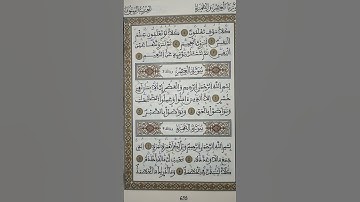 كَلَّا سَوْفَ تَعْلَمُونَ كَلَّا لَوْ تَعْلَمُونَ عِلْمَ
الْيَقِينِ لَتَرَوُنَّ الْجَحِيمَ ثُمَّ لَتَرَوُنَّهَا عَيْنَ
الْيَقِينِ ثُمَّ لَتُسْـَٔلُنَّ يَوْمَئِذٍ عَنِ النَّعِيمِ
سُورَةُ الْعَصْرِ
بِسْمِ اللَّهِ الرَّحْمَٰنِ الرَّحِيمِ وَالْعَصْرِ إِنَّ الْإِنسَانَ لَفِي
خُسْرٍ إِلَّا الَّذِينَ آمَنُوا وَعَمِلُوا الصَّالِحَاتِ
وَتَوَاصَوْا بِالْحَقِّ وَتَوَاصَوْا بِالصَّبْرِ
سُورَةُ الْهُمَزَةِ
بِسْمِ اللَّهِ الرَّحْمَٰنِ الرَّحِيمِ وَيْلٌ لِّكُلِّ هُمَزَةٍ لُّمَزَةٍ الَّذِي
جَمَعَ مَالًا وَعَدَّدَهُ يَحْسَبُ أَنَّ مَالَهُ أَخْلَدَهُ
كَلَّا لَيُنبَذَنَّ فِي الْحُطَمَةِ وَمَا أَدْرَاكَ مَا الْحُطَمَةُ